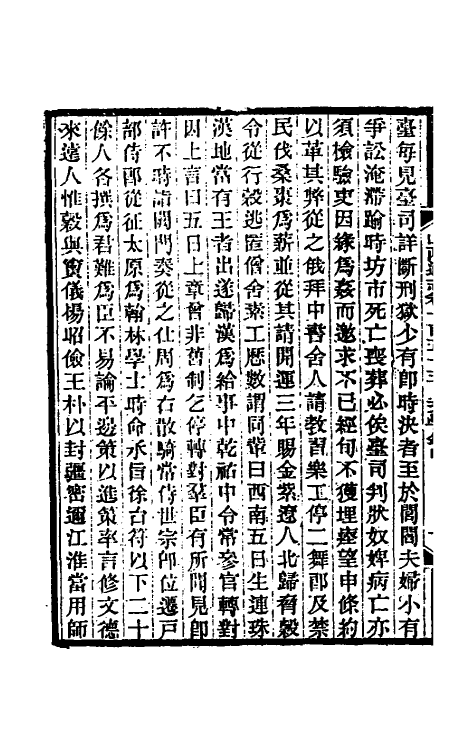 臺每見臺司詳斷刑獄少有卽時決者至於閭閻夫婦小有
爭訟淹滯踰時坊市死亡喪葬必俟臺司判狀奴婢病亡亦
須檢驗吏因緣爲姦而邀求不已經旬不獲埋瘞望申條約
以革其弊從之俄拜中書舍人請教習樂工停二舞郎及禁
民伐桑棗爲薪並從其請開運三年賜金紫遼人北歸脅穀
令從行穀逃匿僧舍素工厯數謂同輩曰西南五日生連珠
漢地當有王者出遂歸漢爲給事中乾祐中令常參官轉對
因上言曰五日上章曾非舊制乞停轉對羣臣有所聞見卽
許不時請閤門奏從之仕周爲右散騎常侍世宗卽位遷戸
部侍郎從征太原爲翰林學士時命承旨徐台符以下二十
餘人各撰爲君難爲臣不易論平邊策以進策率言修文德
來遠人惟穀與竇儀楊昭儉王朴以封疆密邇江淮當用師